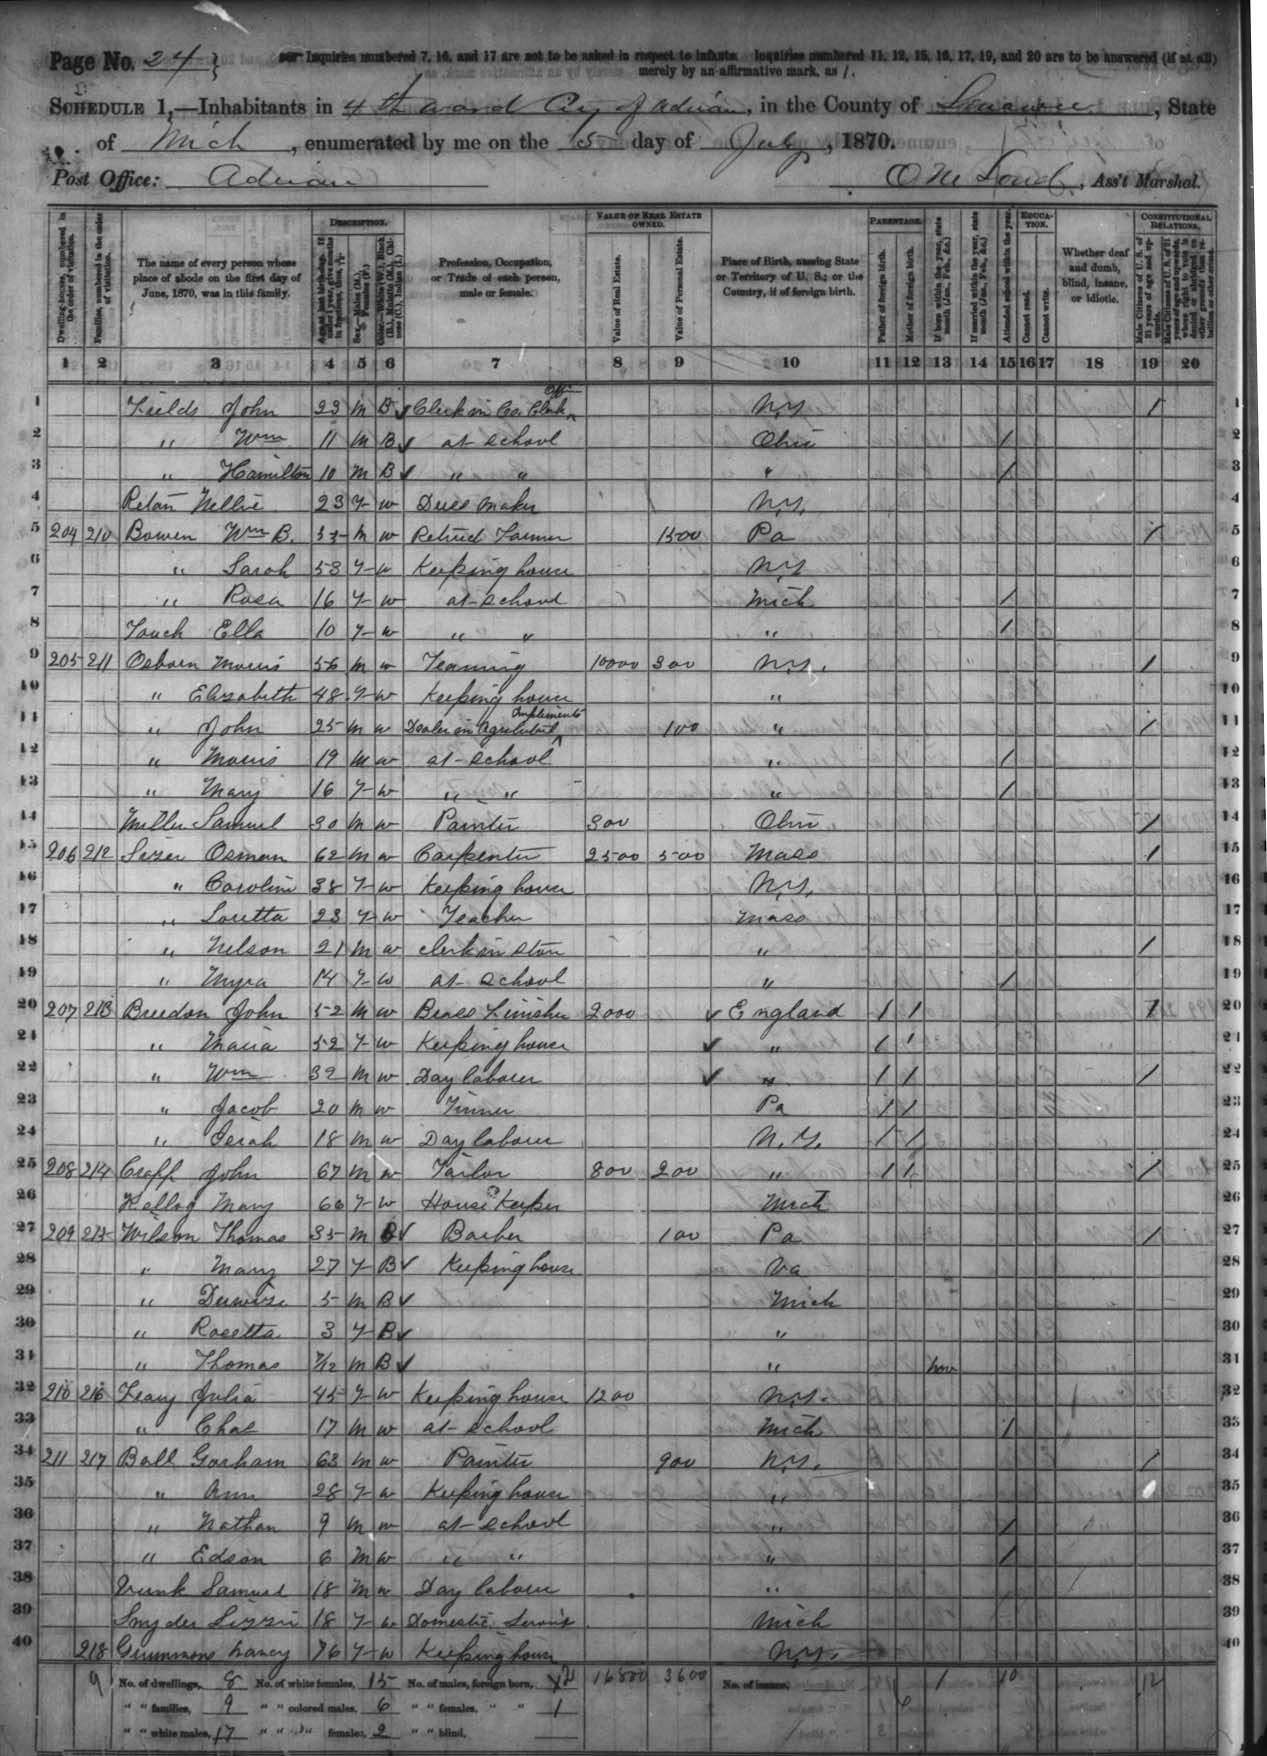 Page No. 24
Inquiries numbered 7, 16, and 17 are not to be asked in respect to infants. Inquiries numbered 11, 12, 15, 16, 17, 19, and 20 are to be answered (if at all)
merely by an affirmative mark, as /.
SCHEDULE 1.—Inhabitants in 4th ward City of Adrian, in the County of Lenawee, State
of Mich, enumerated by me on the 15 day of July, 1870.
Post Office: Adrian , Ass't Marshal.
DESCRIPTION. VALUE OF REAL ESTATE OWNED. PARENTAGE. EDUCATION. CONSTITUTIONAL RELATIONS.
Dwelling-houses, numbered in the order of visitation. Families, numbered in the order of visitation. The name of every person whose place of abode on the first day of June, 1870, was in this family. Profession, Occupation, or Trade of each person, male or female. Value of Real Estate. Value of Personal Estate. Place of Birth, naming State or Territory of U. S.; or the Country, if of foreign birth. Father of foreign birth. Mother of foreign birth. Attended school within the year. Cannot read. Cannot write. Whether deaf and dumb, blind, insane, or idiotic.
1 2 3 4 5 6 7 8 9 10 11 12 13 14 15 16 17 18 19 20
1 Fields John 23 M B Clerk in Co. Clerk Office N.Y. / 1
2 " Wm 11 M B at School Ohio / 2
3 " Hamilton 10 M B " " " / 3
4 Nellie 23 F W Dress Maker N.Y. 4
5 204 210 Bowen Wm B. M W Retired Farmer 1500 Pa / 5
6 " Sarah 53 F W Keeping house N.Y. 6
7 " Rosa 16 F W at School Mich / 7
8 Ella 10 F W " " " / 8
9 205 211 Osborn Morris 56 M W Teaming 10000 300 N.Y. / 9
10 " Elizabeth 48 F W Keeping house " 10
11 " John 25 M W Dealer in Agricultural Implements 100 " / 11
12 " Morris 19 M W at School " / 12
13 " Mary 16 F W " " " / 13
14 Miller Samuel 30 M W Painter 300 Ohio / 14
15 206 212 Osman 62 M W Carpenter 2500 500 Mass / 15
16 " Caroline 38 F W Keeping house N.Y. 16
17 " Loretta 23 F W Teacher Mass 17
18 " Nelson 21 M W Clerk in Store " / 18
19 " Myra 14 F W at School " / 19
20 207 213 Breedon John 52 M W Brass Finisher 2000 England / / / 20
21 " Maria 52 F W Keeping house " / / 21
22 " Wm 32 M W Day laborer " / / / 22
23 " Jacob 20 M W Tinner Pa / / 23
24 " 18 M W Day laborer N.Y. / / 24
25 208 214 Crapp John 67 M W Tailor 800 200 " / / / 25
26 Kellog Mary 60 F W House Keeper Mich 26
27 209 215 Wilson Thomas 35 M B Barber 100 Pa / 27
28 " Mary 27 F B Keeping house Va 28
29 " 5 M B Mich 29
30 " Rosetta 3 F B " 30
31 " Thomas 7/12 M B " Nov 31
32 210 216 Julia 45 F W Keeping house 1200 N.Y. 32
33 " Chas 17 M W at School Mich / 33
34 211 217 Ball Gorham 63 M W Painter 900 N.Y. / 34
35 " Ann 28 F W Keeping house " 35
36 " Nathan 9 M W at School " / 36
37 " Edson 6 M W " " " / 37
38 Samuel 18 M W Day laborer " 38
39 Snyder Lizzie 18 F W Domestic Servt Mich 39
40 218 Gummons Nancy 76 F W Keeping house N.Y. 40
9 No. of dwellings, 8 No. of white females, 15 No. of males, foreign born, 16800 3600 No. of insane, 1 10 12
" " families, 9 " " colored males, 6 " " females, " " 1
" " white males, 17 " " " females, 2 " " blind,